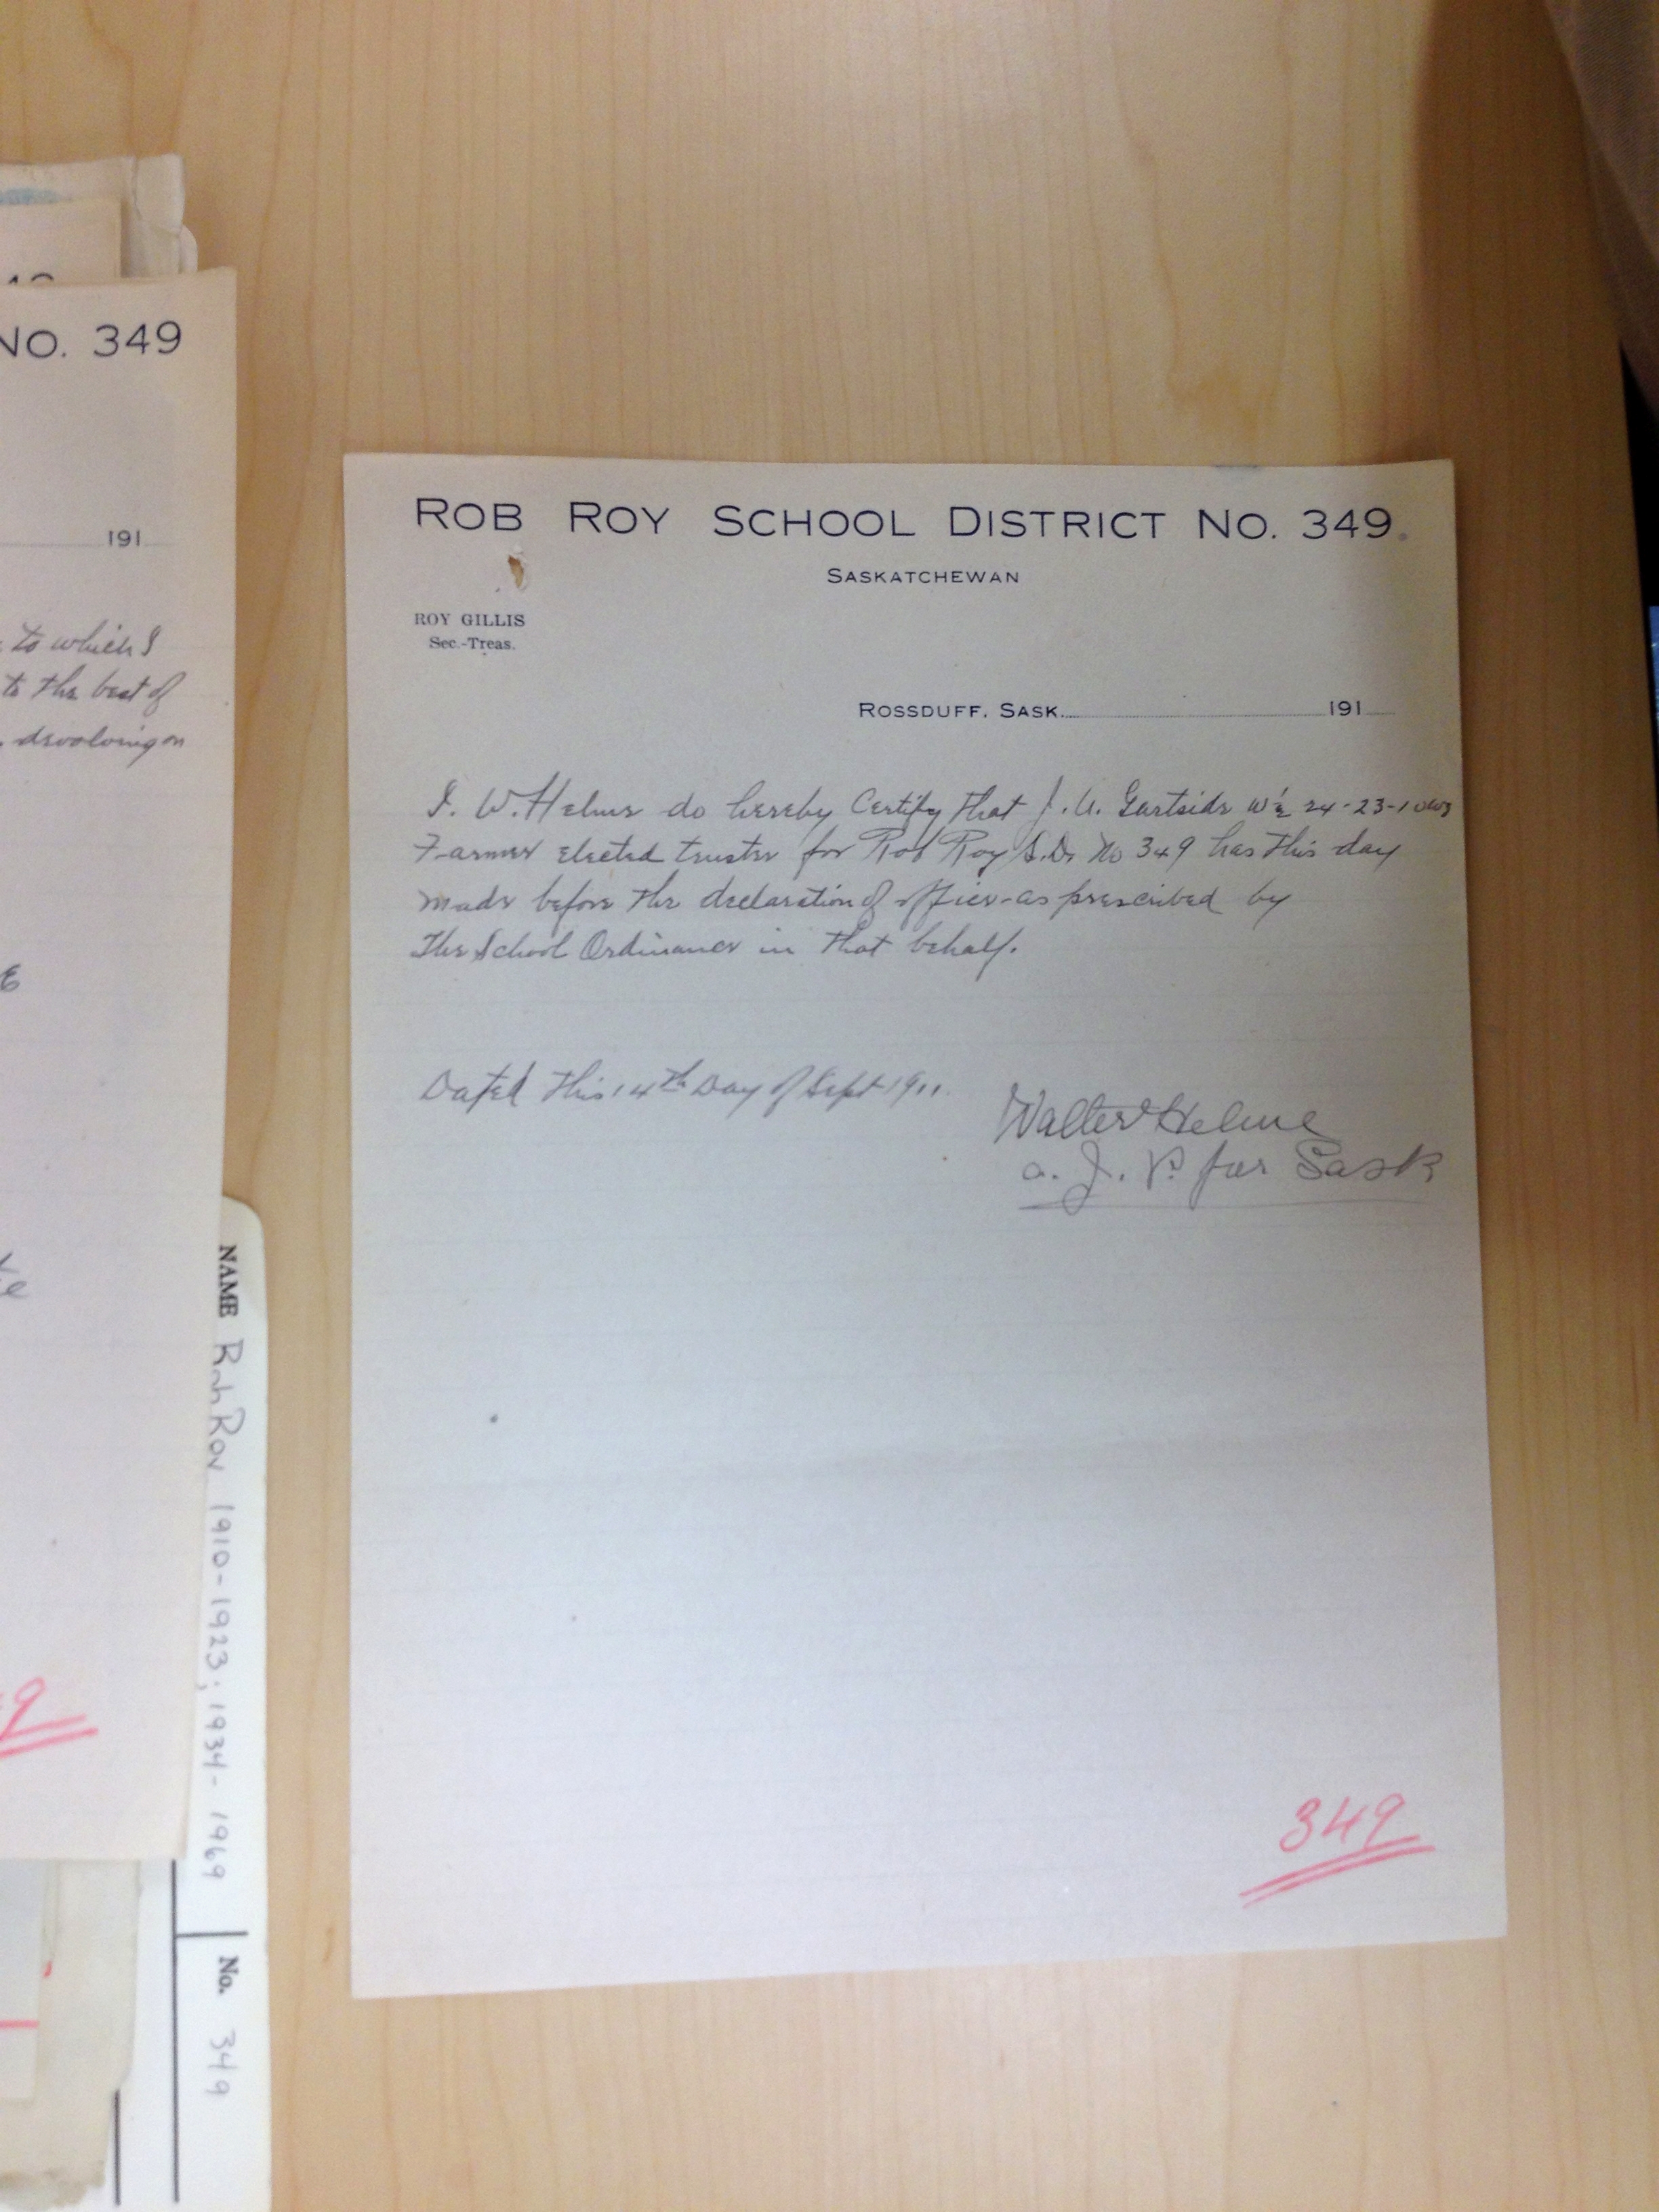 NO. 349
191
to which I
to the best of
devolving on
ROB ROY SCHOOL DISTRICT NO. 349.
SASKATCHEWAN
ROY GILLIS
Sec.-Treas.
ROSSDUFF, SASK. 191
I. W. Helme do hereby Certify that J. U. Gartside W ½ 24-23-1 W3
Farmer elected trustee for Rob Roy S.D. No 349 has this day
made before the declaration of office as prescribed by
The School Ordinance in that behalf.
Dated this 14th Day of Sept 1911.
Walter Helme
a. J. P. for Sask
349
NAME Rob Roy 1910-1923; 1934-1969 No. 349